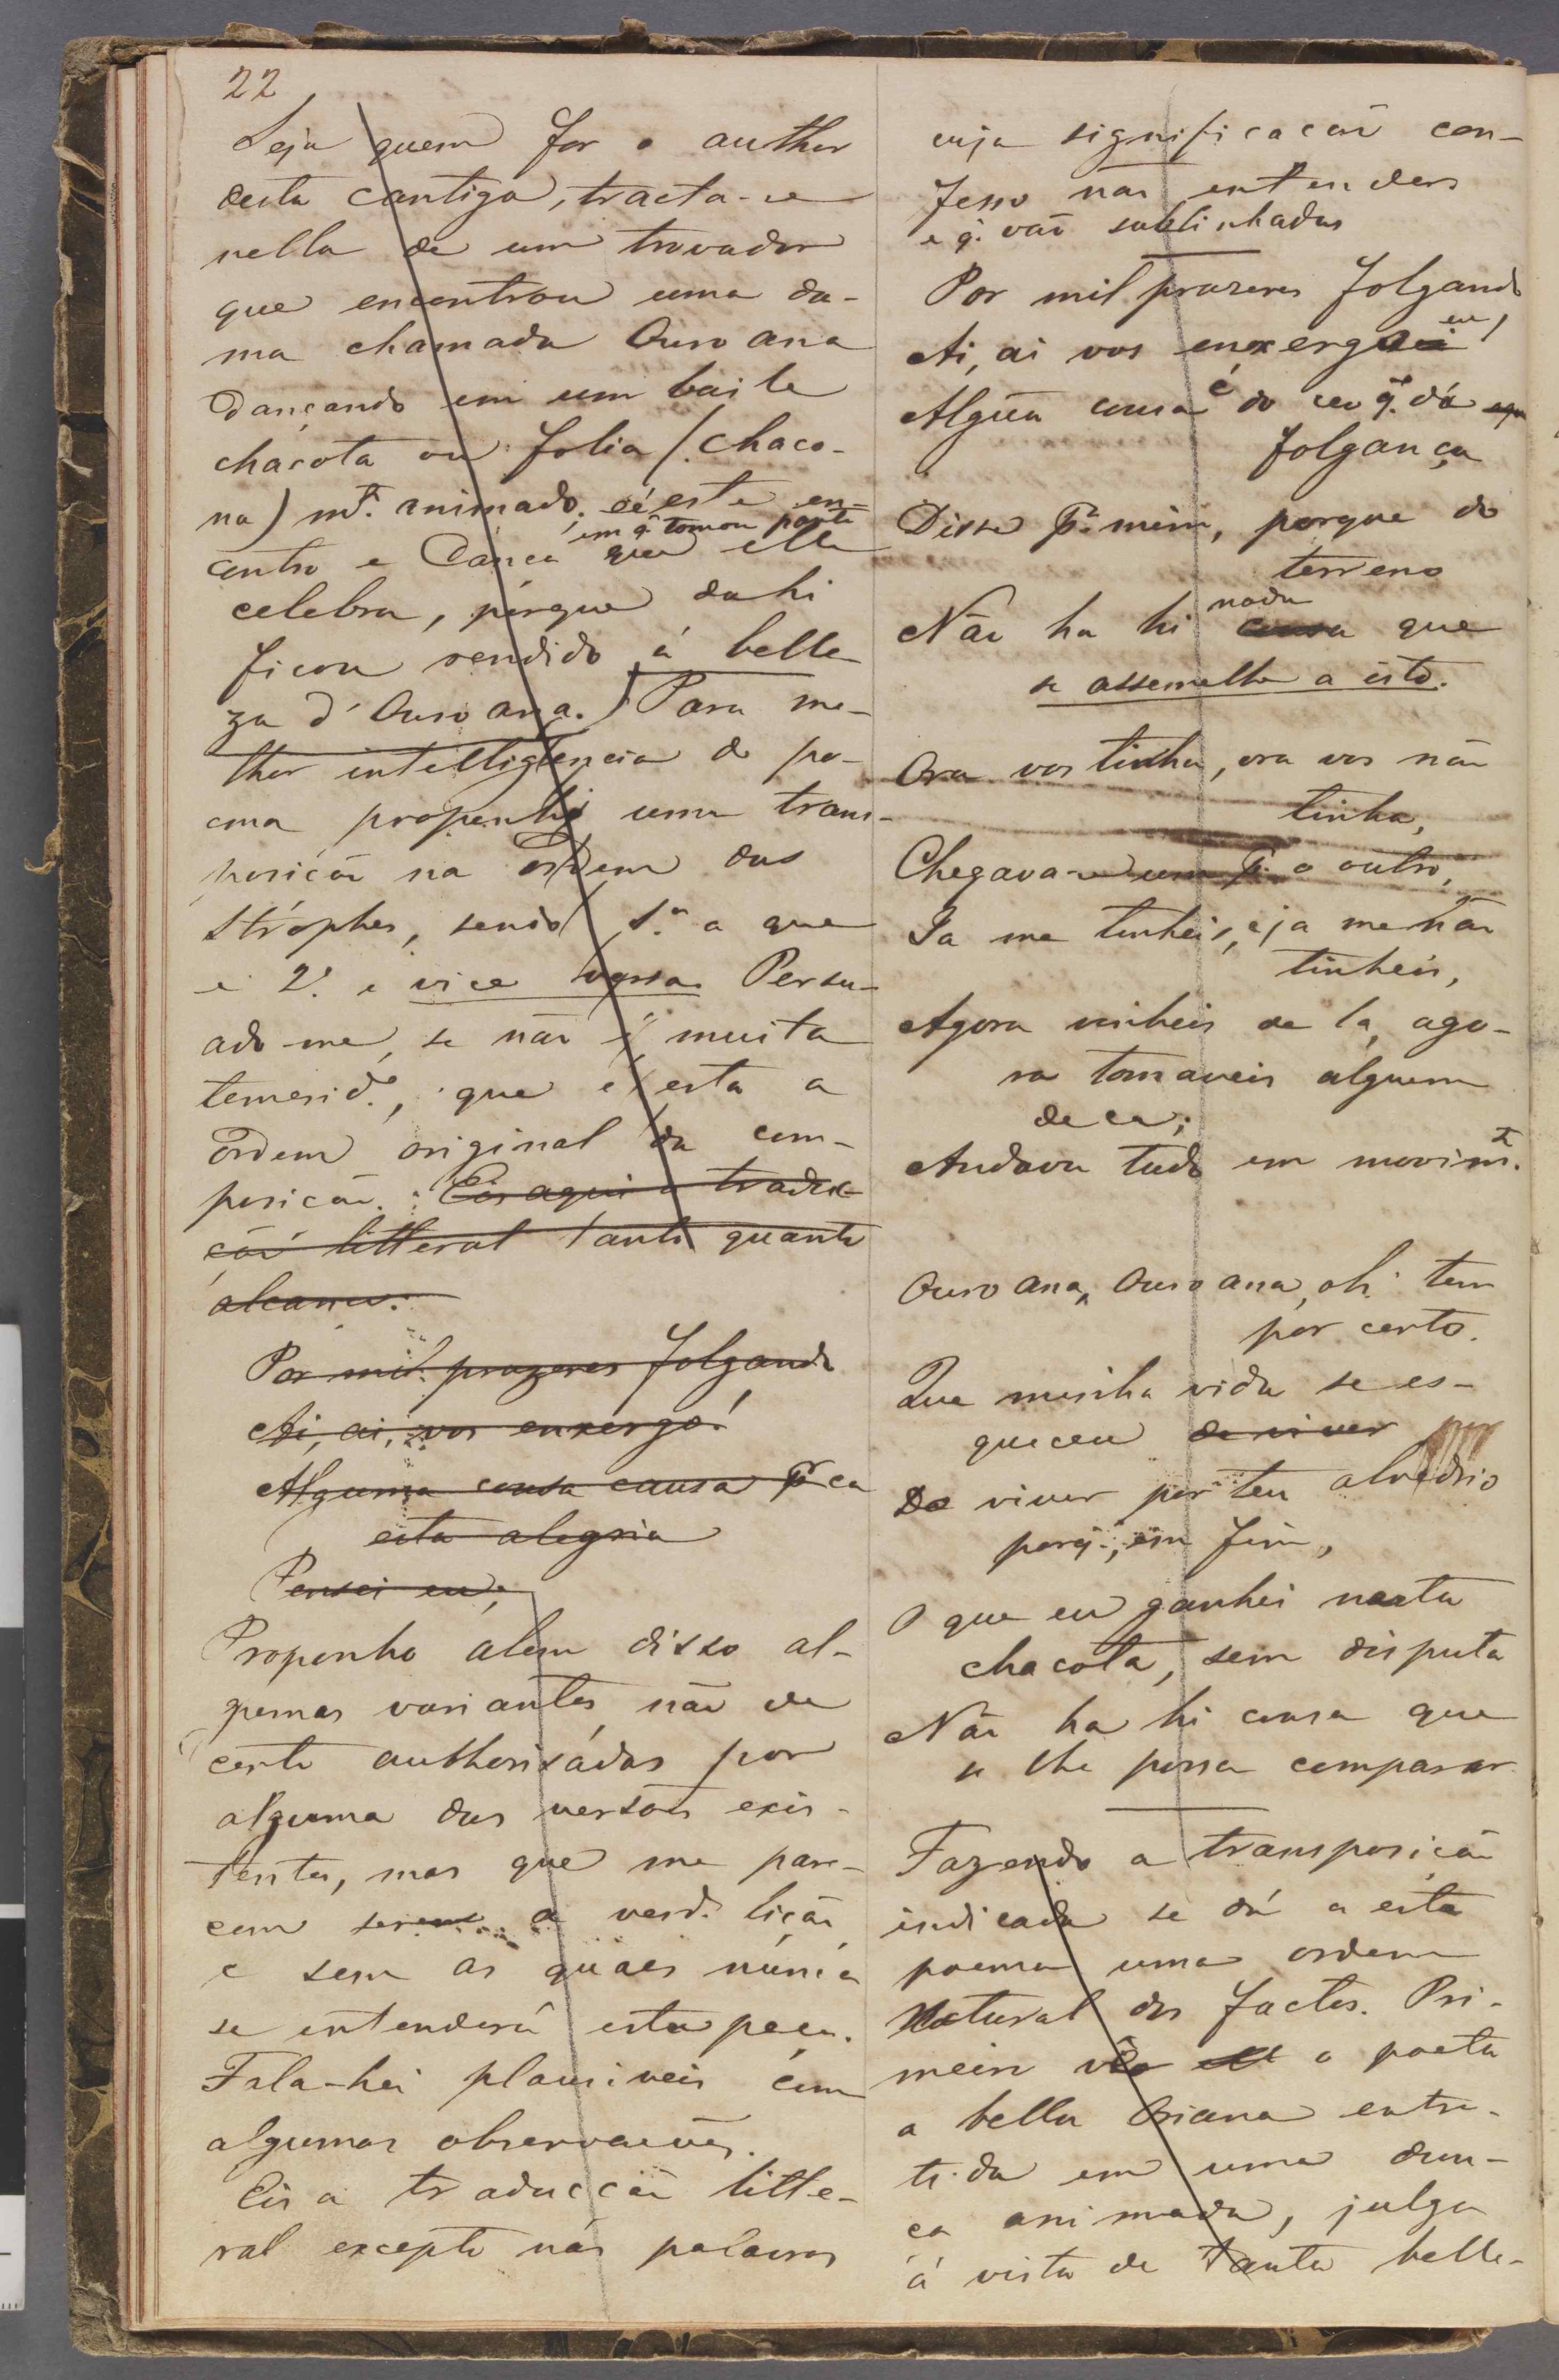 22
Seja quem for o author
desta cantiga, tracta-se
nella de um trovador
que encontrou uma da-
ma chamada Ouroana
dançando em um baile
chacota ou folia (chaco-
na) mt.º animado. É este en-
contro e dança em q̃ tomou parte que elle
celebra, porque dahi
ficou rendido á belle-
za d'Ouroana.) Para me-
lhor intelligencia do po-
ema proponho uma trans-
posição na ordem das
strophes, sendo 1.ª a que
é 2.ª e vice versa. Persu-
ado-me, se não é muita
temerid.e, que é esta a
ordem original da com-
posição. Eis aqui a traduc-
ção litteral tanto quanto
alcanço:
Por mil prazeres folgando
Ai, ai, vos enxergo!
Alguma cousa causa pr ca
esta alegria
Pensei eu;
Proponho alem disso al-
gumas variantes não de
certo authorisadas por
alguma das versões exis-
tentes, mas que me pare-
cem serem a verd.ª lição
e sem as quaes nunca
se entenderá esta peça.
Fala-hei plausiveis com
algumas observações.
Eis a traducção litte-
ral excepto nas palavras
cuja significação con-
fesso não entender
e q. vão sublinhadas
Por mil prazeres folgando
Ai, ai vos enxerguei eu!
Algũa cousa é do ceo q̃. dá
folgança
Disse pª. mim, porque do
terreno
Não ha hi cousa nada que
se assemelhe a isto.
Ora vos tinha, ora vos não
tinha,
Chegava-se um pª. o outro,
Ja me tinheis, e ja me não
tinheis,
Agora vinheis de la, ago-
ra tomaveis alguem
de ca;
Andava tudo em movim.to
Ouroana, Ouroana, oh! tem
por certo.
Que minha vida se es-
queceu de viver por
De viver por teu alvedrio
porq̃., em fim,
O que eu ganhei nesta
chacota, sem disputa
Não ha hi cousa que
se lhe possa comparar
Fazendo a transposição
indicada se dá a este
poema uma ordem
natural dos factos. Pri-
meiro vêo o poeta
a bella Oriana entre-
tida em uma dan-
ça animada, julga
á vista de tanta belle-